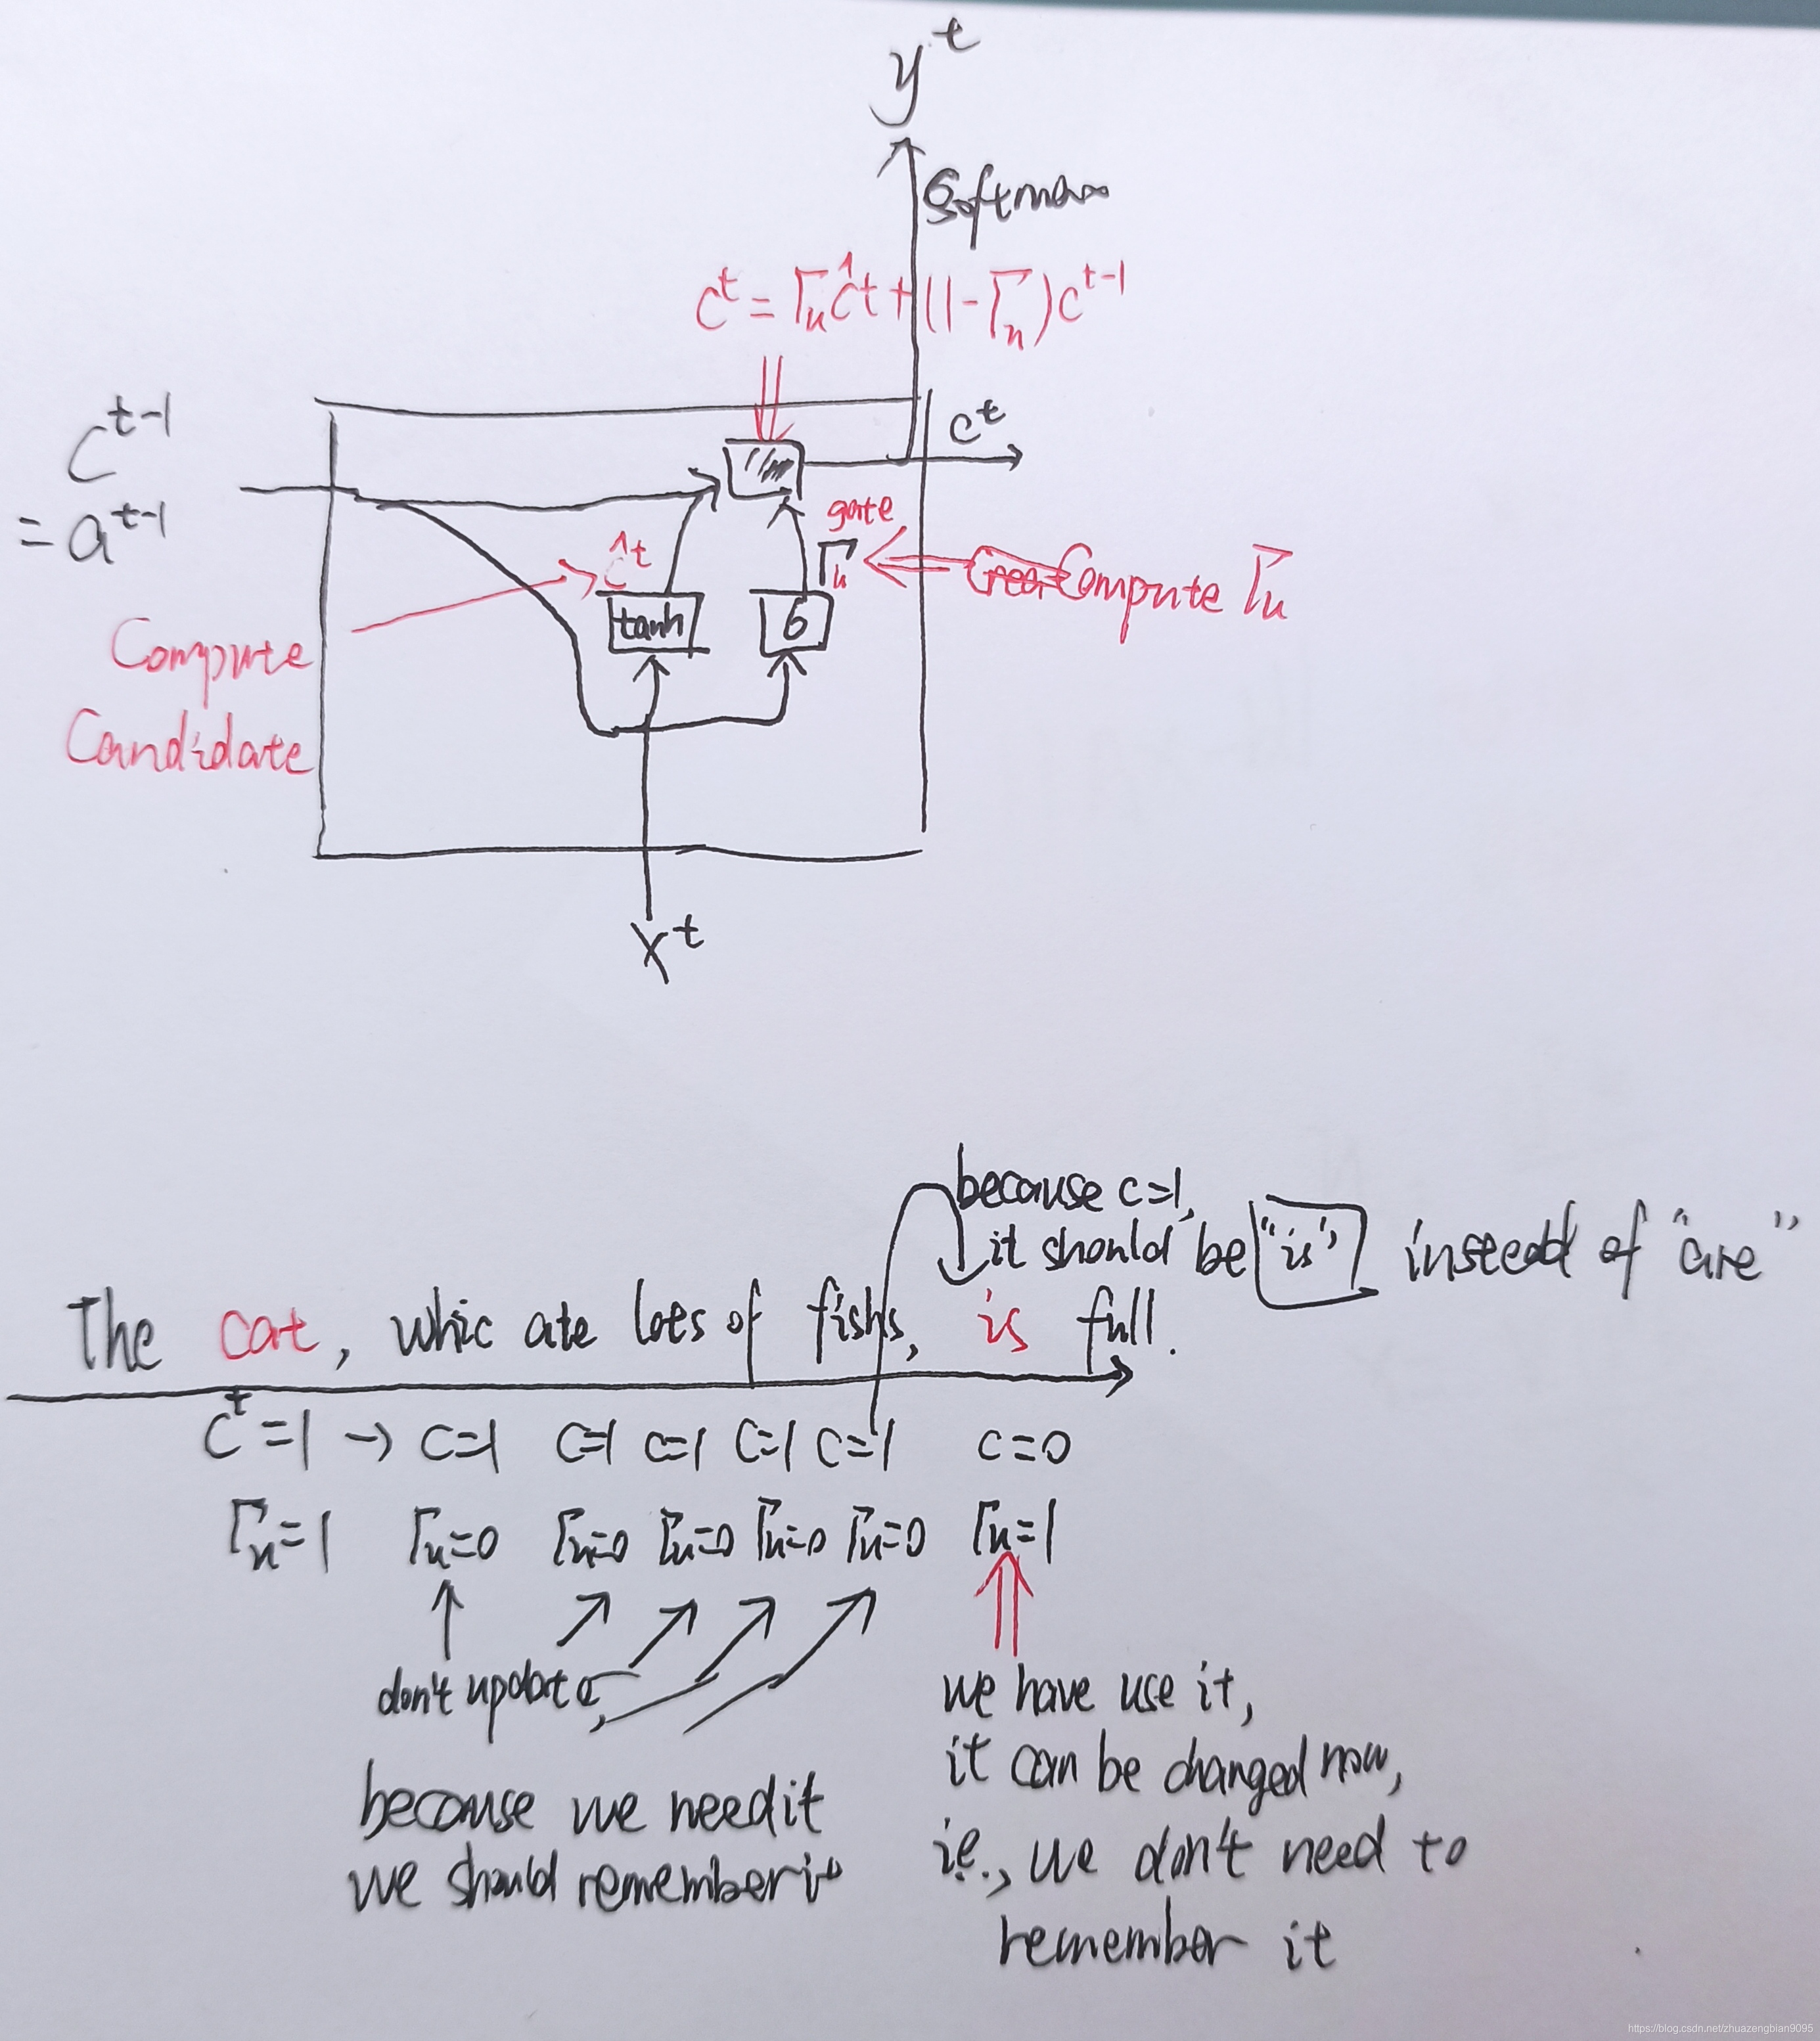 y^t
Softmax
c^t = Γu ĉ^t + (1 - Γu) c^t-1
c^t-1
= a^t-1
c^t
gate
ĉ^t
Γu
Compute Γu
tanh
σ
Compute
Candidate
x^t
because c=1,
it should be "is" instead of "are"
The cat, whic ate lots of fishs, is full.
c^t=1 → c=1 c=1 c=1 c=1 c=1 c=0
Γu=1 Γu=0 Γu=0 Γu=0 Γu=0 Γu=0 Γu=1
don't update,
because we need it
we should remember it
we have use it,
it can be changed now,
i.e., we don't need to
remember it
https://blog.csdn.net/zhuazengbian9095